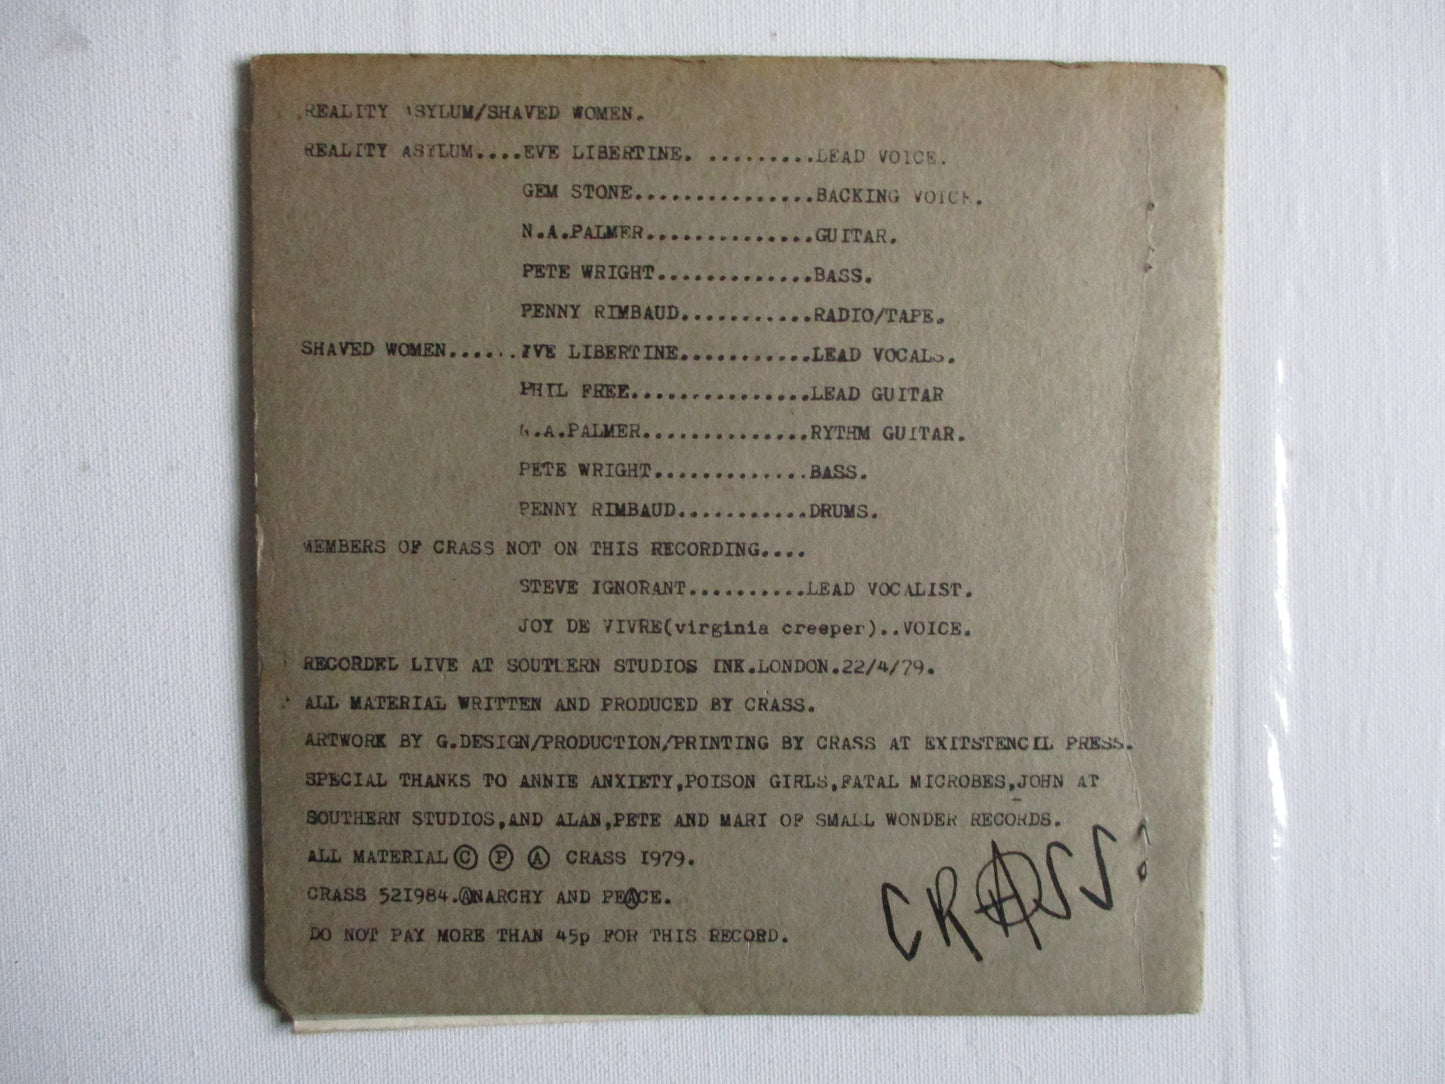 REALITY ASYLUM/SHAVED WOMEN.
REALITY ASYLUM....EVE LIBERTINE. .........LEAD VOICE.
GEM STONE...............BACKING VOICE.
N.A.PALMER..............GUITAR.
PETE WRIGHT.............BASS.
PENNY RIMBAUD...........RADIO/TAPE.
SHAVED WOMEN......EVE LIBERTINE...........LEAD VOCALS.
PHIL FREE...............LEAD GUITAR
N.A.PALMER..............RYTHM GUITAR.
PETE WRIGHT.............BASS.
PENNY RIMBAUD...........DRUMS.
MEMBERS OF CRASS NOT ON THIS RECORDING....
STEVE IGNORANT..........LEAD VOCALIST.
JOY DE VIVRE(virginia creeper)..VOICE.
RECORDED LIVE AT SOUTHERN STUDIOS INK.LONDON.22/4/79.
ALL MATERIAL WRITTEN AND PRODUCED BY CRASS.
ARTWORK BY G.DESIGN/PRODUCTION/PRINTING BY CRASS AT EXITSTENCIL PRESS.
SPECIAL THANKS TO ANNIE ANXIETY,POISON GIRLS,FATAL MICROBES,JOHN AT
SOUTHERN STUDIOS,AND ALAN,PETE AND MARI OF SMALL WONDER RECORDS.
ALL MATERIAL Ⓒ Ⓟ Ⓐ CRASS 1979.
CRASS 521984.ⒶNARCHY AND PEⒶCE.
DO NOT PAY MORE THAN 45p FOR THIS RECORD.
CRⒶSS!